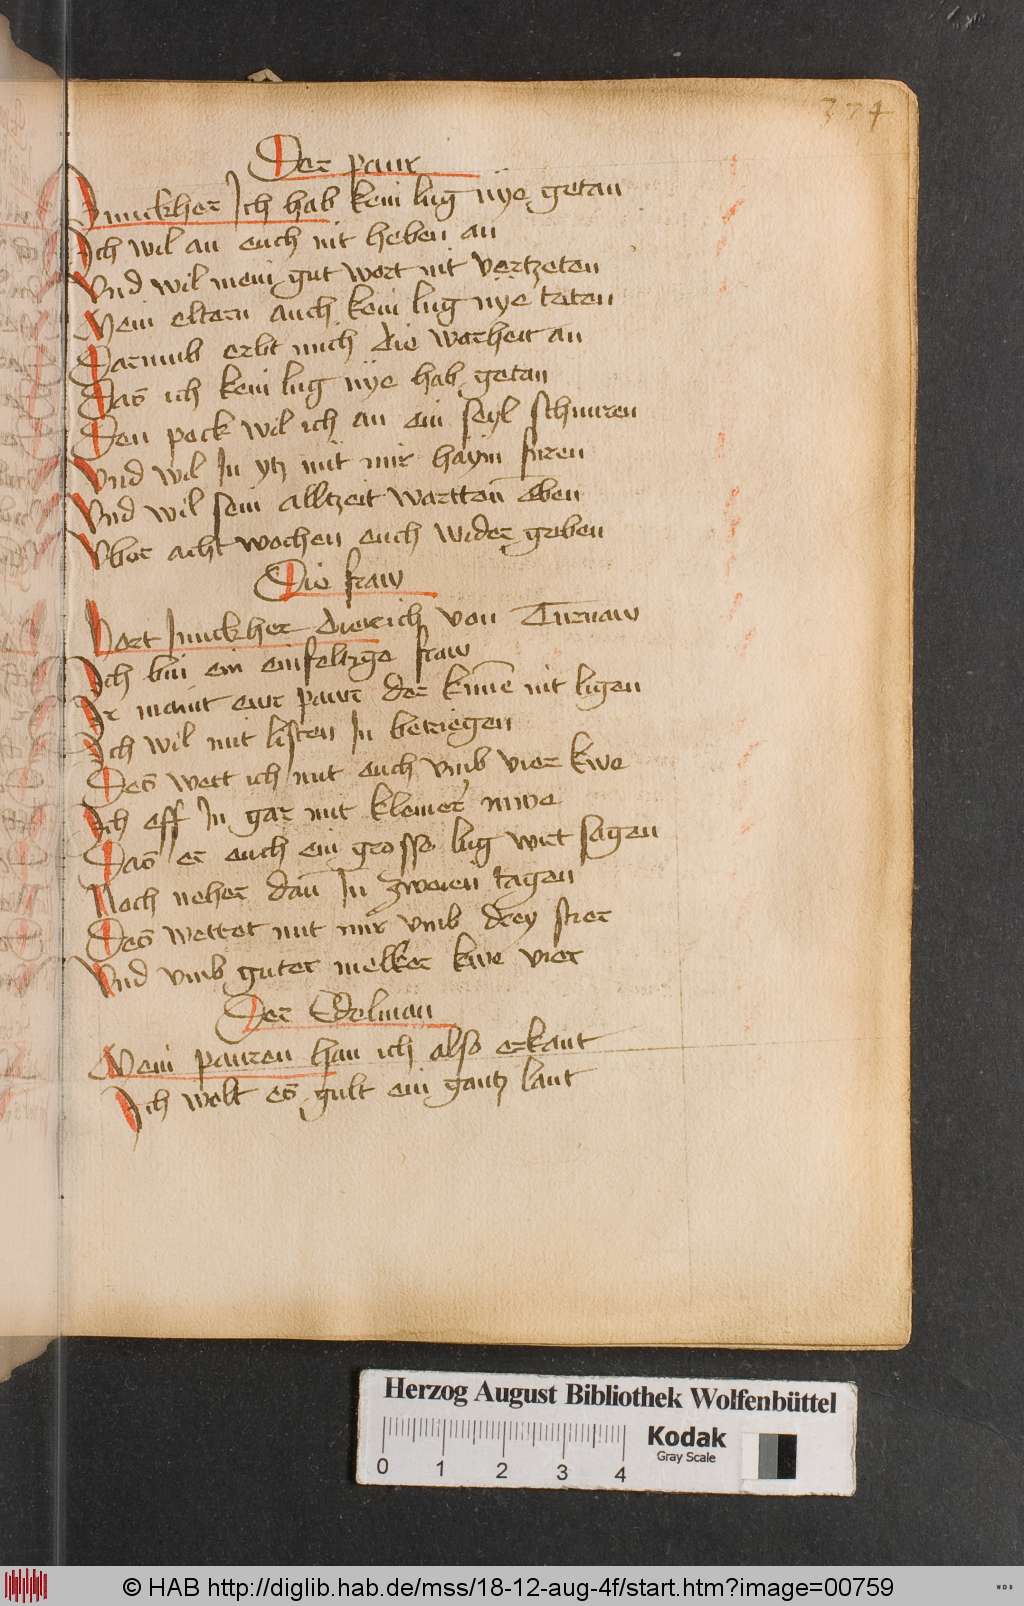 374
Der paur
Junckher Ich hab kein lug nÿe getan
Ich wil an euch nit heben an
Vnd wil mein gut wort nit vertzeten
Mein eltern auch kein lug nÿe teten
Darumb erbt mich die warheit an
Das ich kein lug nÿe hab getan
Den pock wil ich an ein seyl schnuren
Vnd wil In ytz mit mir haym furen
Vnd wil sein alltzeit wartten eben
Vber acht wochen euch wider geben
Die fraw
Hort Junckher dietrich von Turnaw
Ich bin ein einfeltzge fraw
Ir maint ewr pawr der kunne nit ligen
Ich wil mit listen In betriegen
Des wett ich mit euch vmb vier kwe
Ich eff In gar mit kleiner mwe
Das er euch ein grosse lug wirt sagen
Noch neher dan In zweien tagen
Des wettet mit mir vmb drey stier
Vnd vmb guter melker kwe vier
Der Edelman
Mein pauren han ich also erkant
Ich wolt es gult ein gantz lant
Herzog August Bibliothek Wolfenbüttel
Kodak
Gray Scale
0 1 2 3 4
© HAB http://diglib.hab.de/mss/18-12-aug-4f/start.htm?image=00759